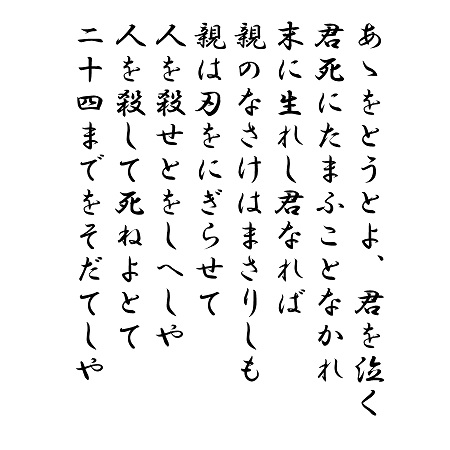 あゝをとうとよ、君を泣く
君死にたまふことなかれ
末に生れし君なれば
親のなさけはまさりしも
親は刃をにぎらせて
人を殺せとをしへしや
人を殺して死ねよとて
二十四までをそだてしや